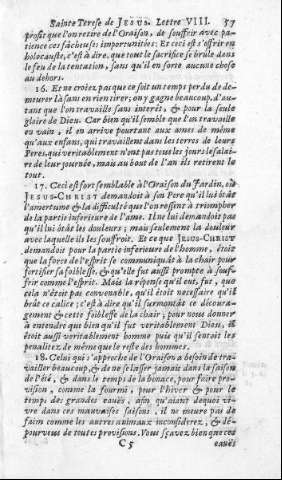 Sainte Terese de JESUS. Lettre VIII. 57
profit que l'on retire de l'Oraison, de souffrir avec pa-
tience ces fâcheuses importunités: Et ceci est s'offrir en
holocauste, c'est à dire, que tout le sacrifice se brûle dans
le feu de la tentation, sans qu'il en sorte aucune chose
au dehors.
16. Et ne croiez pas que ce soit un temps perdu de de-
meurer là sans en rien tirer; on y gagne beaucoup, d'au-
tant que l'on travaille sans interêt, & pour la seule
gloire de Dieu. Car bien qu'il semble que l'on travaille
en vain, il en arrive pourtant aux ames de même
qu'aux enfans, qui travaillent dans les terres de leurs
Peres, qui veritablement n'ont pas tous les jours le salai-
re de leur journée, mais au bout de l'an ils retirent le
tout.
17. Ceci est fort semblable à l'Oraison du Jardin, où
JESUS-CHRIST demandoit à son Pere qu'il lui ôtât
l'amertume & la difficulté que l'on ressent à triompher
de la partie inferieure de l'ame. Il ne lui demandoit pas
qu'il lui ôtât les douleurs; mais seulement la douleur
avec laquelle il les souffroit. Et ce que JESUS-CHRIST
demandoit pour la partie inferieure de l'homme, étoit
que la force de l'esprit se communiquât à la chair pour
fortifier sa foiblesse, & qu'elle fut aussi prompte à souf-
frir comme l'esprit. Mais la réponse qu'il eut, fut, que
cela n'étoit pas convenable, qu'il étoit necessaire qu'il
bût ce calice; c'est à dire qu'il surmontât ce décourà-
gement & cette foiblesse de la chair; pour nous donner
à entendre que bien qu'il fut veritablement Dieu, il
étoit aussi veritablement homme puis qu'il sentoit les
penalitez de même que le reste des hommes.
18. Celui qui s'approche de l'Oraison a besoin de tra-
vailler beaucoup, & de ne se lasser jamais dans la saison
de l'été, & dans le temps de la bonace, pour faire pro-
vision, comme la fourmi, pour l'hiver & pour le
temps des grandes eaües, afin qu'aiant dequoi vi-
vre dans ces mauvaises saisons, il ne meure pas de
faim comme les autres animaux inconsiderez, & dé-
pourveus de toutes provisions. Vous sçavez bien que ces
C 5 eaües